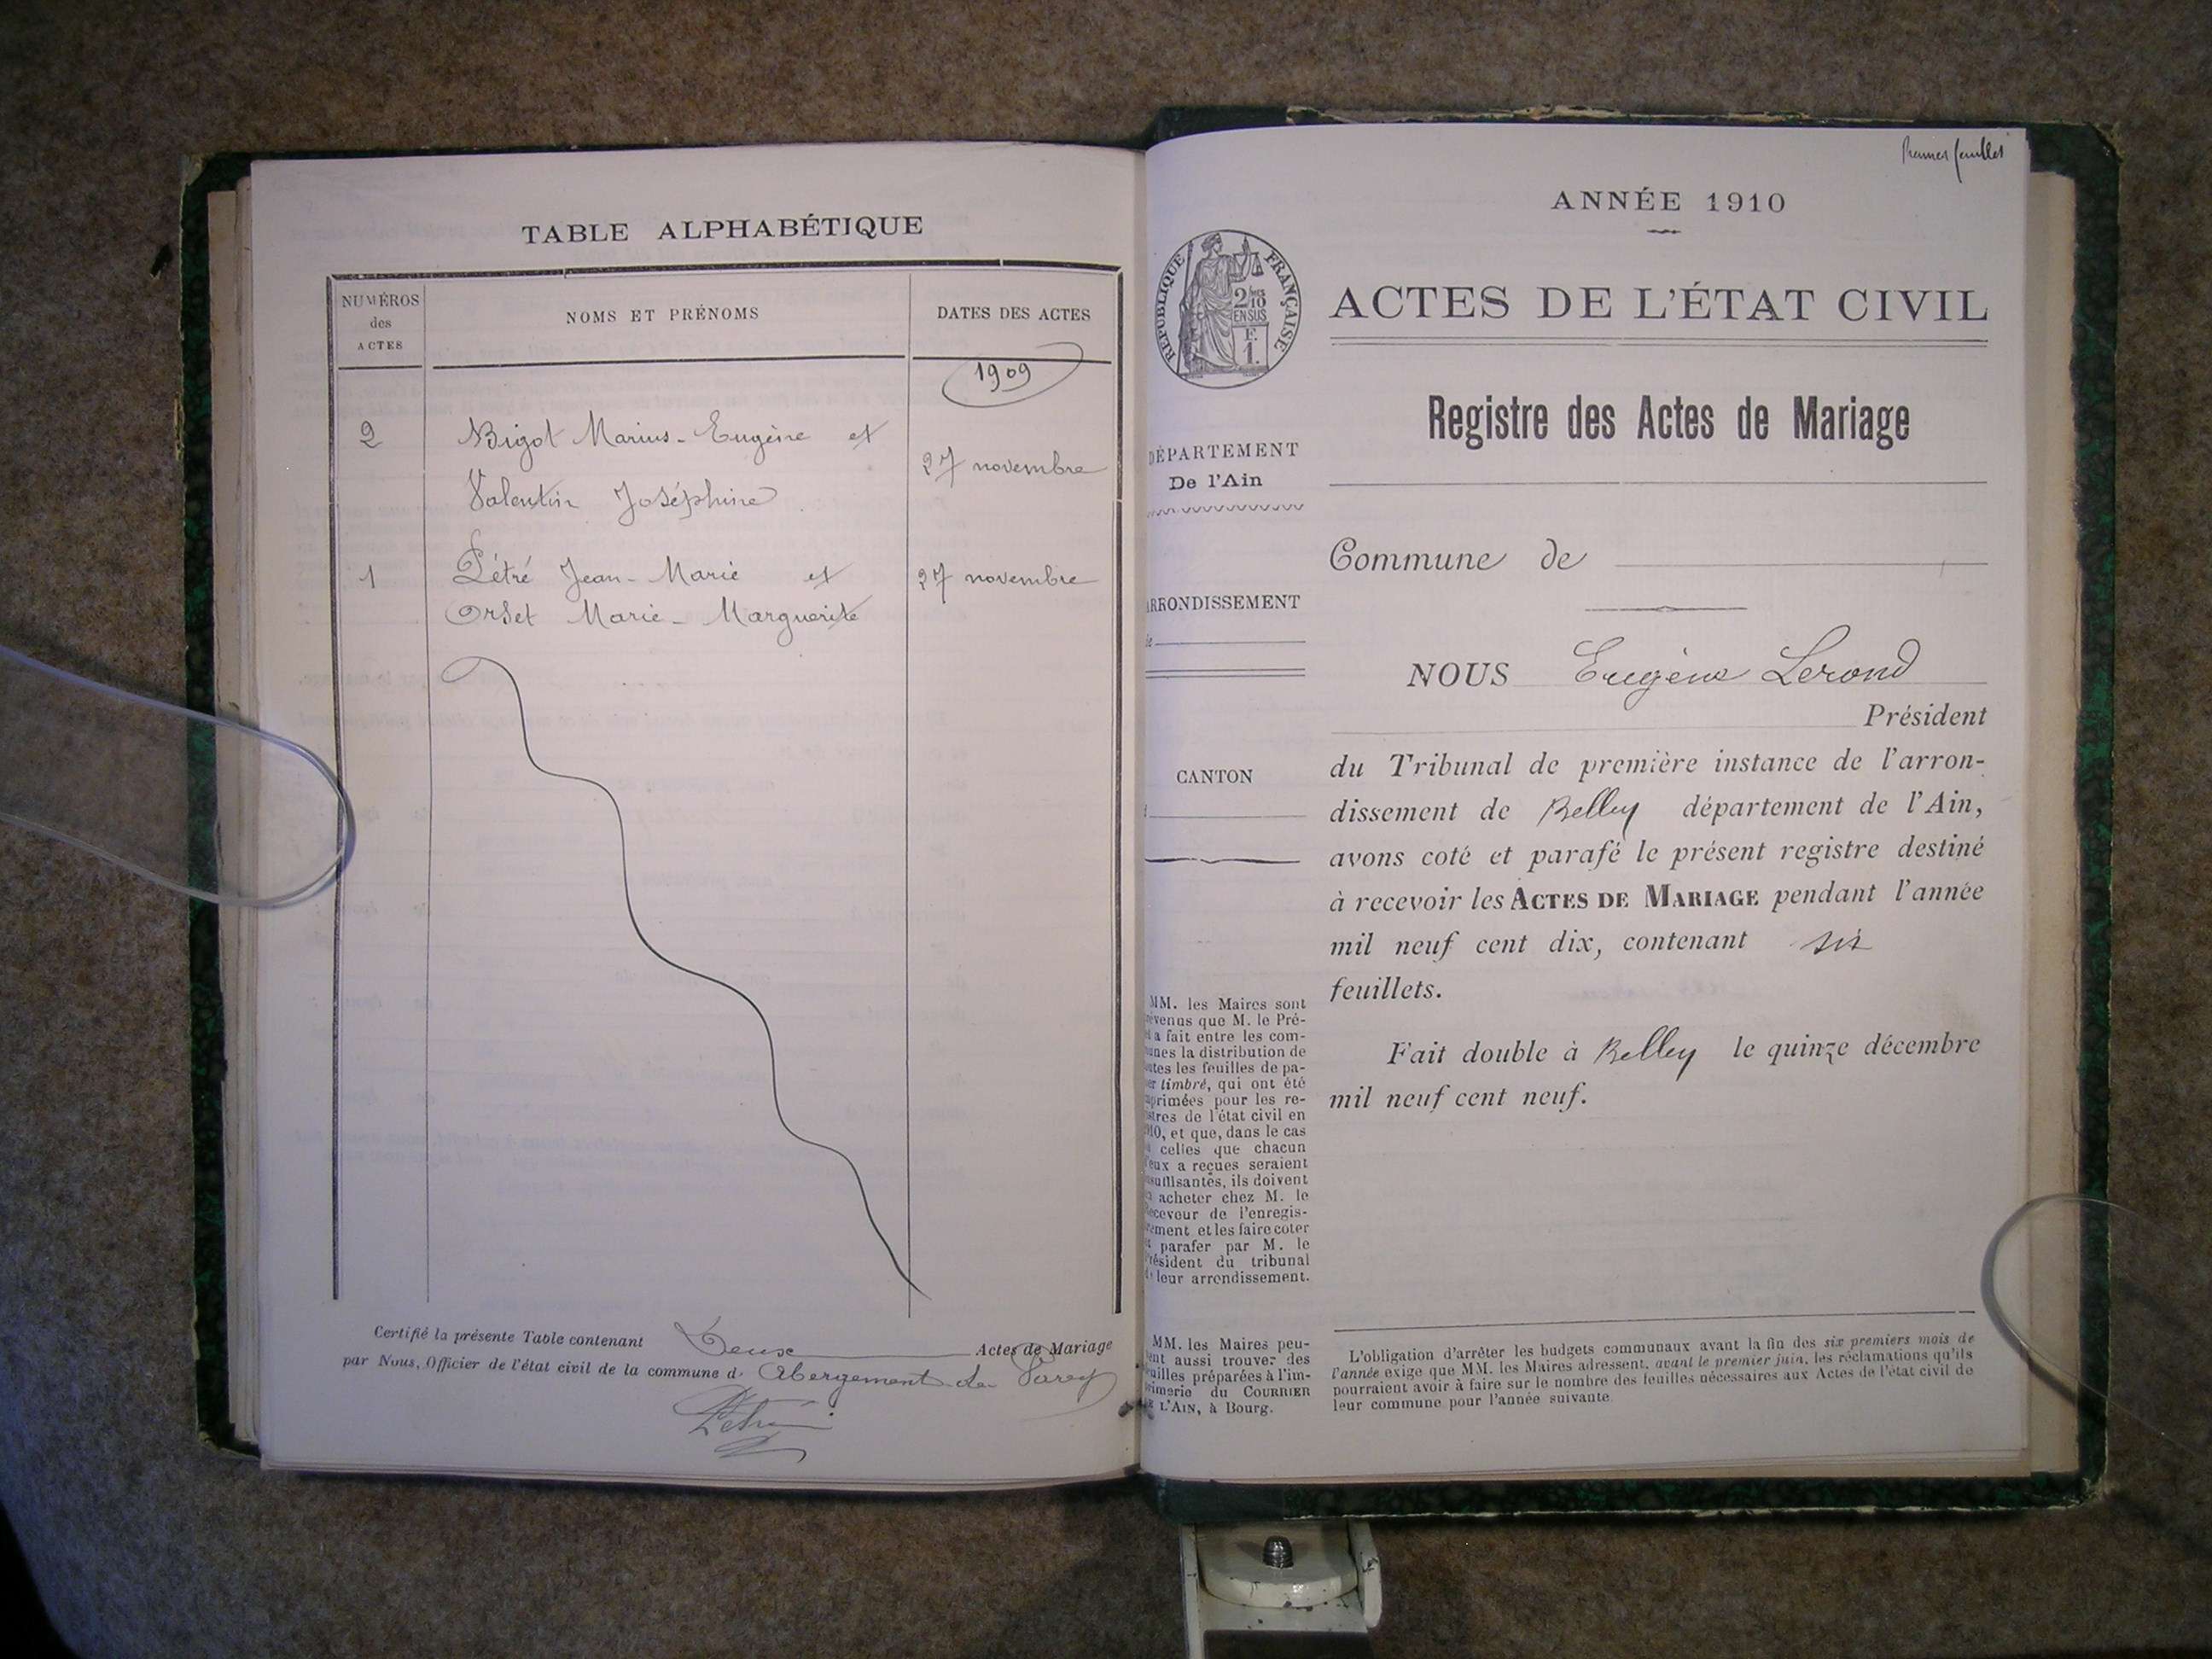 TABLE ALPHABÉTIQUE
NUMÉROS
des
ACTES
NOMS ET PRÉNOMS
DATES DES ACTES
1909
2 Bigot Marius-Eugène et
27 novembre
Valentin Joséphine
1 Pétré Jean-Marie et 27 novembre
Orset Marie-Marguerite
Certifié la présente Table contenant Deux Actes de Mariage
par Nous, Officier de l'état civil de la commune d' Abergement-de-Varey
Pétré
Premier feuillet
ANNÉE 1910
RÉPUBLIQUE FRANÇAISE
2/10
EN SUS
F.
1.
ACTES DE L'ÉTAT CIVIL
Registre des Actes de Mariage
DÉPARTEMENT
De l'Ain
Commune de
ARRONDISSEMENT
NOUS Eugène Lerond
Président
du Tribunal de première instance de l'arron-
dissement de Belley département de l'Ain,
avons coté et parafé le présent registre destiné
à recevoir les ACTES DE MARIAGE pendant l'année
mil neuf cent dix, contenant six
feuillets.
Fait double à Belley le quinze décembre
mil neuf cent neuf.
CANTON
MM. les Maires sont
évenus que M. le Pré-
a fait entre les com-
unes la distribution de
utes les feuilles de pa-
er timbré, qui ont été
primées pour les re-
stres de l'état civil en
910, et que, dans le cas
celles que chacun
'eux a reçues seraient
suffisantes, ils doivent
acheter chez M. le
eceveur de l'enregis-
rement et les faire coter
t parafer par M. le
résident du tribunal
leur arrondissement.
MM. les Maires peu-
ent aussi trouver des
euilles préparées à l'im-
rimerie du COURRIER
E L'AIN, à Bourg.
L'obligation d'arrêter les budgets communaux avant la fin des six premiers mois de
l'année exige que MM. les Maires adressent, avant le premier juin, les réclamations qu'ils
pourraient avoir à faire sur le nombre des feuilles nécessaires aux Actes de l'état civil de
leur commune pour l'année suivante.